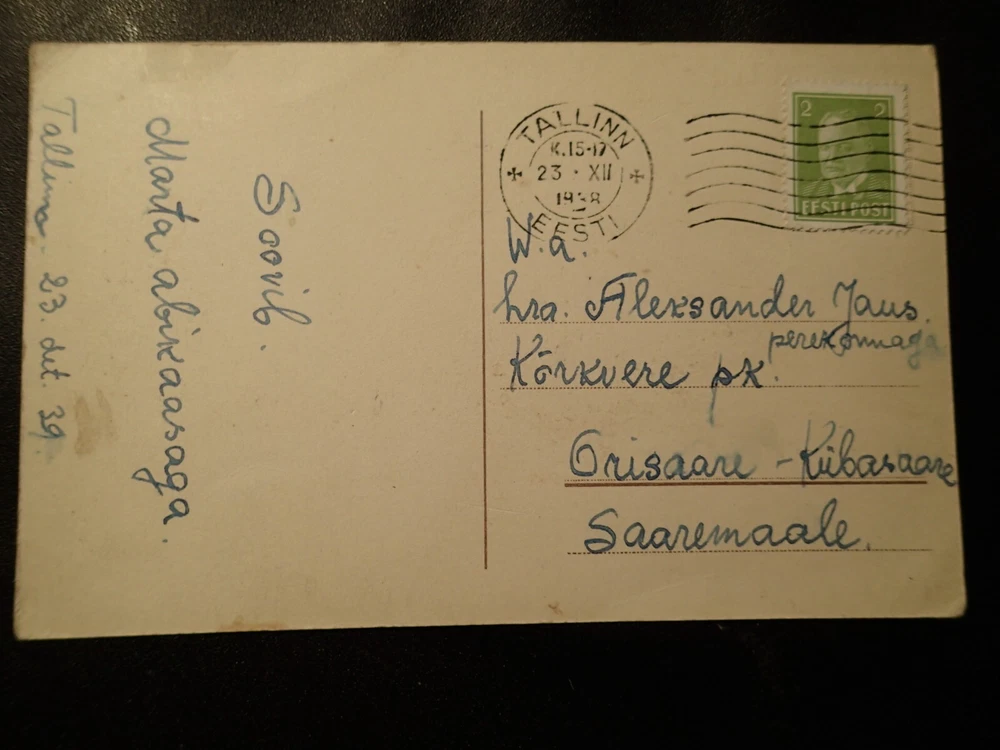 Soovib.
Manta abikaasaga.
Tallinn 23. det. 39.
TALLINN
K.15-17
23 · XII
1938
EESTI
2 2
EESTI POST
W. a.
hra. Aleksander Jaus.
perekonnaga
Kõrkvere pk.
Orisaare - Kübasaare
Saaremaale.